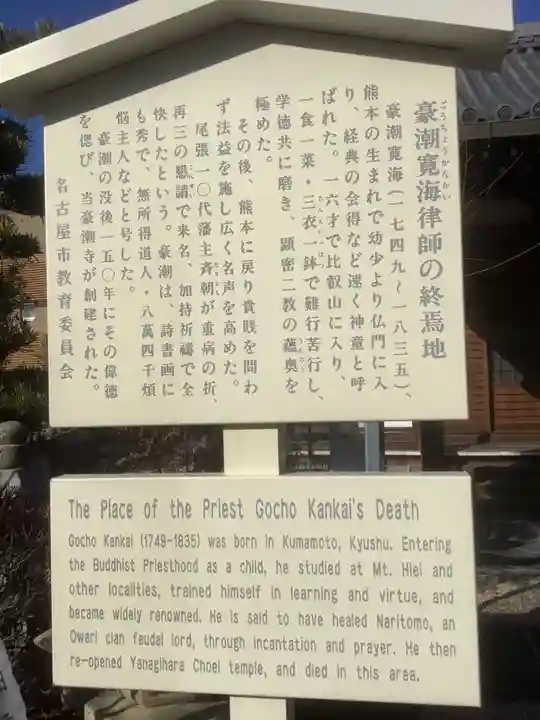 豪潮寛海律師の終焉地
ごうちょうかんかい
豪潮寛海(一七四九～一八三五)、
熊本の生まれで幼少より仏門に入
り、経典の会得など速く神童と呼
ばれた。一六才で比叡山に入り、
一食一菜・三衣一鉢で難行苦行し、
学徳共に磨き、顕密二教の蘊奥を
極めた。
その後、熊本に戻り貴賤を問わ
ず法益を施し広く名声を高めた。
尾張一〇代藩主斉朝が重病の折、
再三の懇請で来名、加持祈禱で全
快したという。豪潮は、詩書画に
も秀で、無所得道人・八萬四千煩
悩主人などと号した。
豪潮の没後一五〇年にその偉徳
を偲び、当豪潮寺が創建された。
名古屋市教育委員会
The Place of the Priest Gocho Kankai's Death
Gocho Kankai (1749-1835) was born in Kumamoto, Kyushu. Entering
the Buddhist Priesthood as a child, he studied at Mt. Hiei and
other localities, trained himself in learning and virtue, and
became widely renowned. He is said to have healed Naritomo, an
Owari clan feudal lord, through incantation and prayer. He then
re-opened Yanagihara Choei temple, and died in this area.